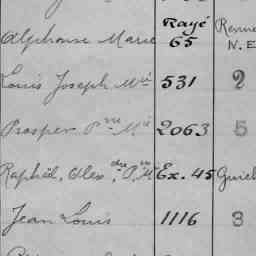 Rayé
Alphonse Marie 65
N. E
Louis Joseph Mie 531 2
Prosper Pre Mie 2063 5
Raphël, Alex. Ex. 45
Jean Louis 1116 3